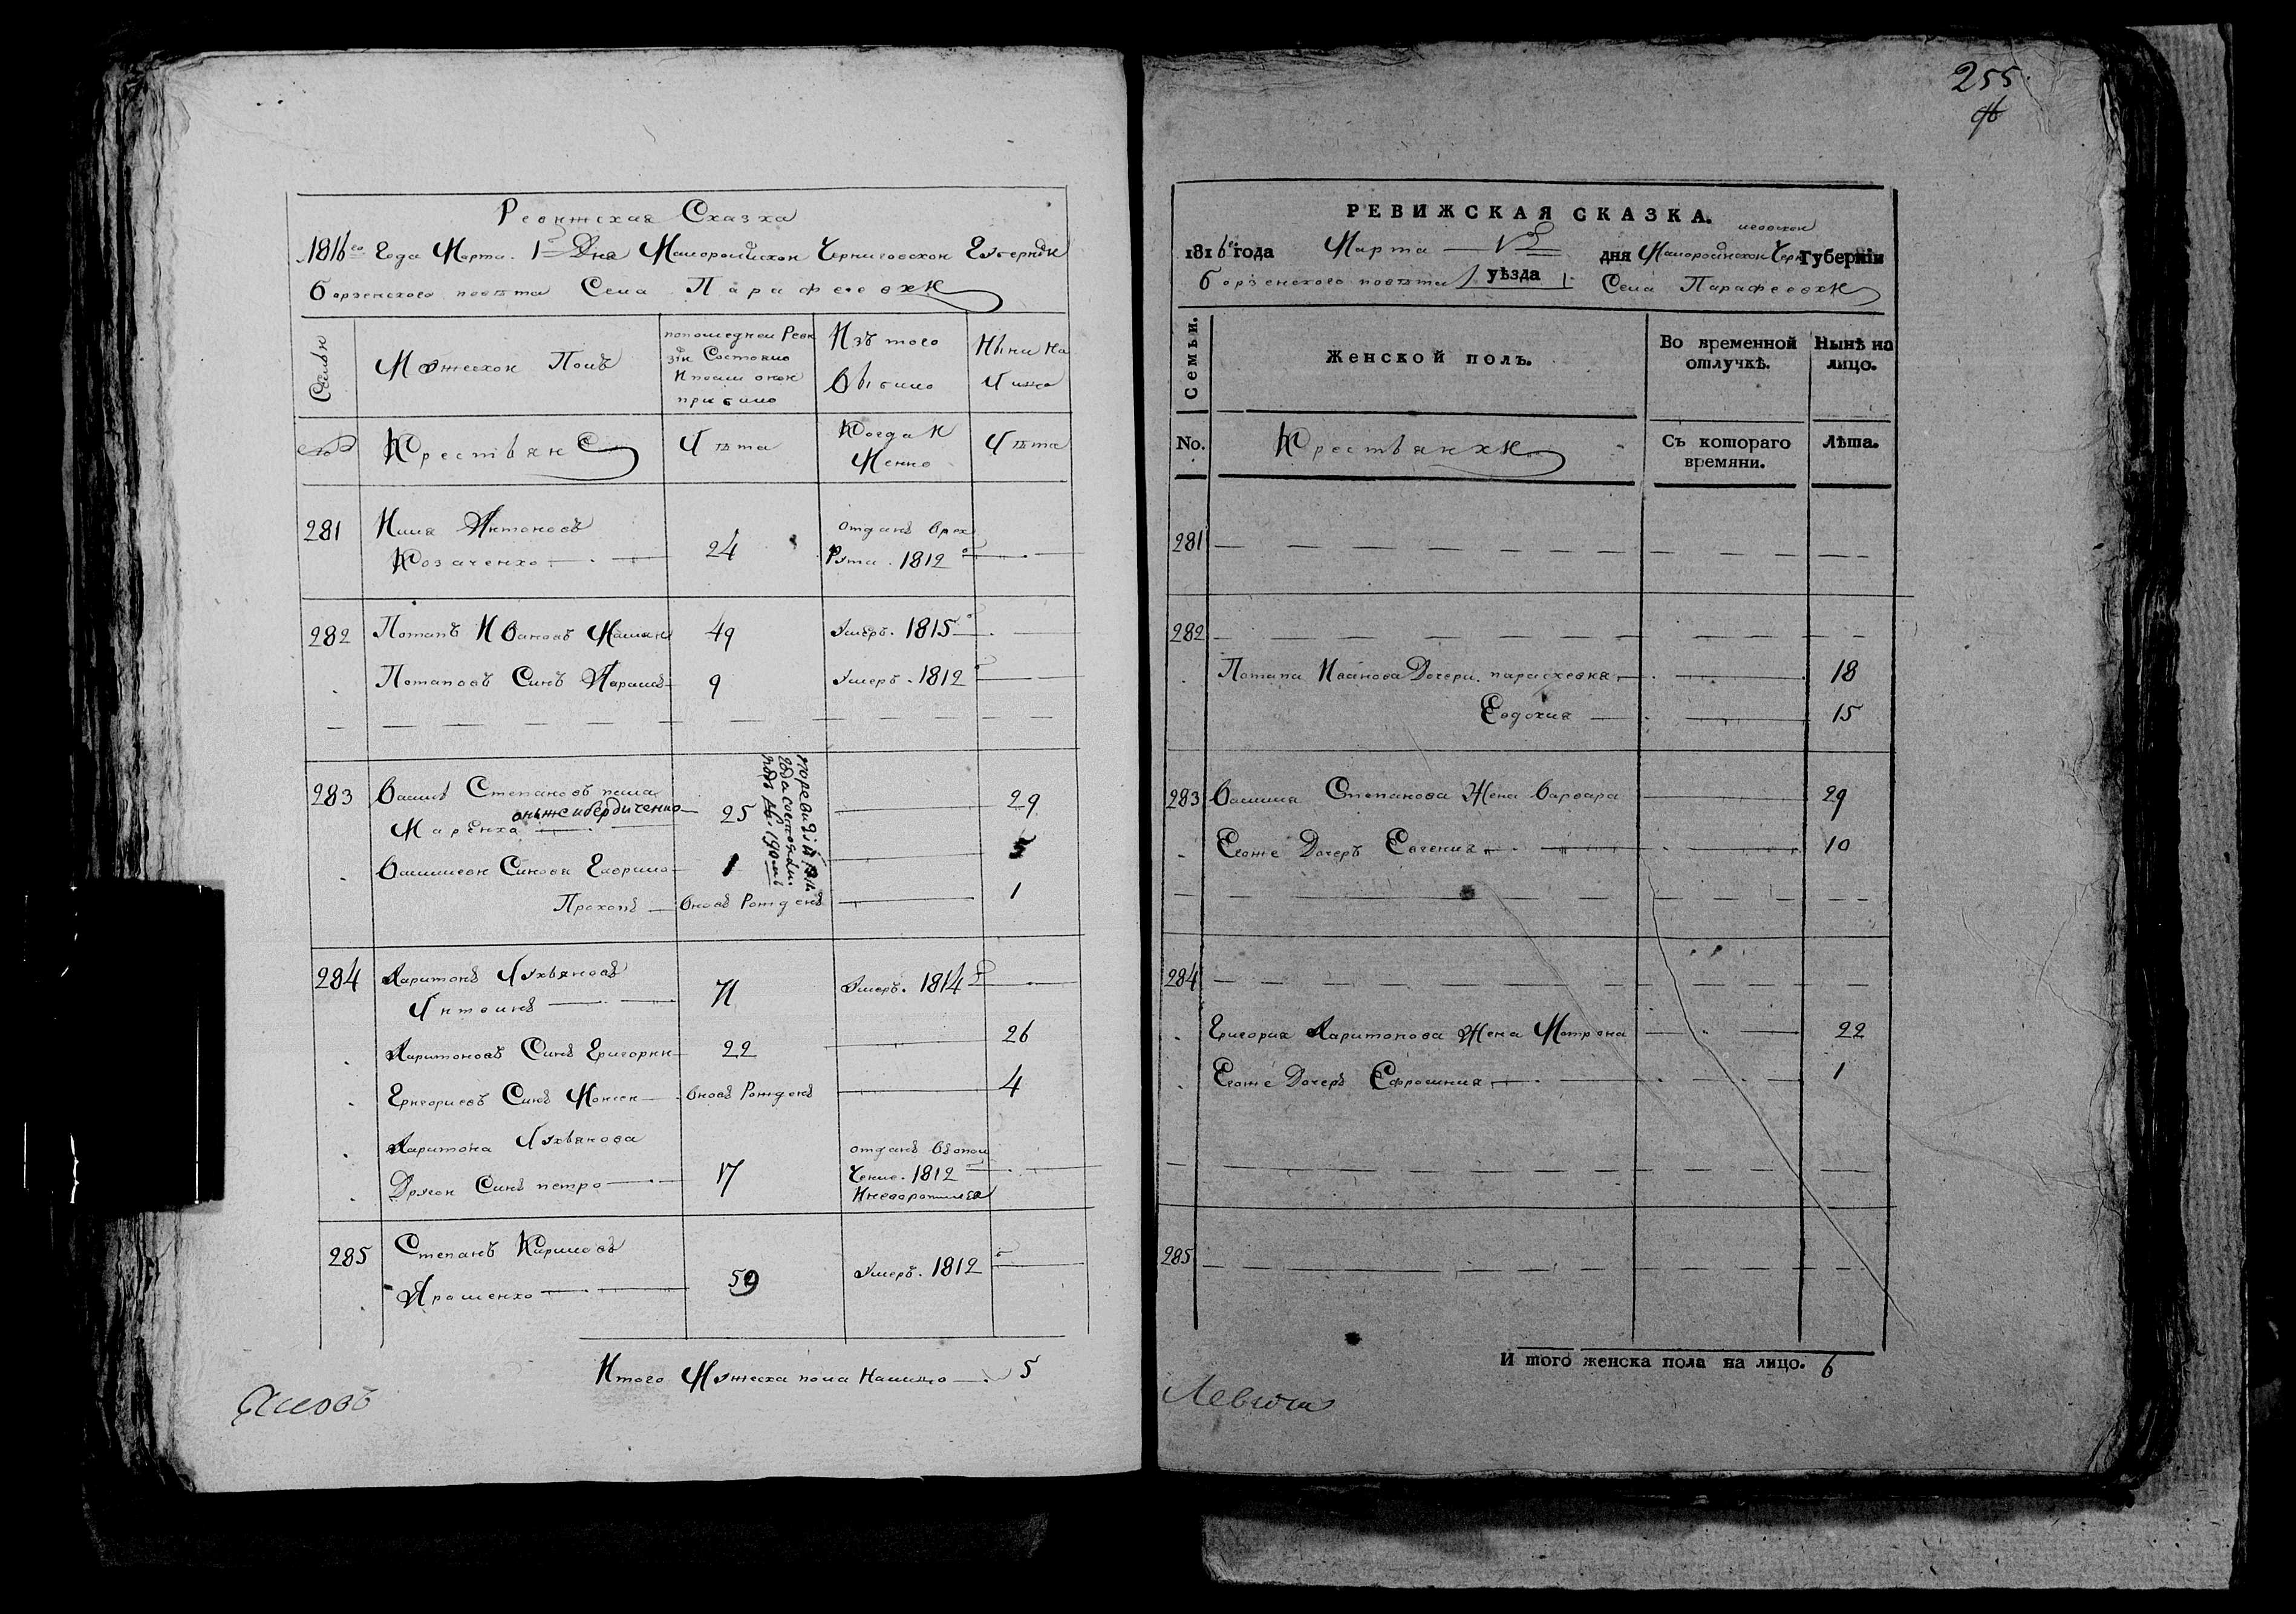 Ревижская Сказка
1816го Года Марта 1 Дня Малороссійской Черниговской Губерніи
Борзенского повѣта Села Парафеевки
Семьи
Мужеской Полъ
по последней Реви
зіи Состояло
и после оной
прибыло
Изъ того
Выбыло
Ныне на
Лицо
№
Крестьяне
Лѣта
Когда и
Менно
Лѣта
281
Антоновъ
Козаченко
24
отданъ в рек
Руты. 1812
282
Потапъ Ивановъ
49
Умеръ. 1815
Потаповъ Синъ
9
Умеръ. 1812
283
Степановъ
онъже и бердиченко
Маренко
25
29
Синовя Гаврило
1
Прокопъ
Вновъ Рожденъ
1
284
Харитонъ Лукьяновъ
71
Умеръ. 1814
Харитоновъ Синъ Григорий
22
26
Григориевъ Синъ Моисей
Вновъ Рожденъ
4
Харитона Лукьянова
Другой Синъ петро
17
отданъ въ опол
чение. 1812
И невороти
285
Степанъ Кириловъ
Ярошенко
59
Умеръ. 1812
Итого Мужеска пола Налицо 5
255
РЕВИЖСКАЯ СКАЗКА.
1816го года Марта 1 дня Малороссійской Черниговской Губерніи
Борзенского повѣта уѣзда Села Парафеевки
Семьи.
Женской полъ.
Во временной
отлучкѣ.
Нынѣ на
лицо.
No.
Крестьянки
Съ котораго
времяни.
Лѣта.
281
282
Потапа Иванова Дочери. параскевия
18
Евдокия
15
283
Степанова Жена Варвара
29
Егоже Дочеръ Евгения
10
284
Григория Харитонова Жена Мотрона
22
Егоже Дочеръ Ефросиния
1
285
И того женска пола на лицо. 6